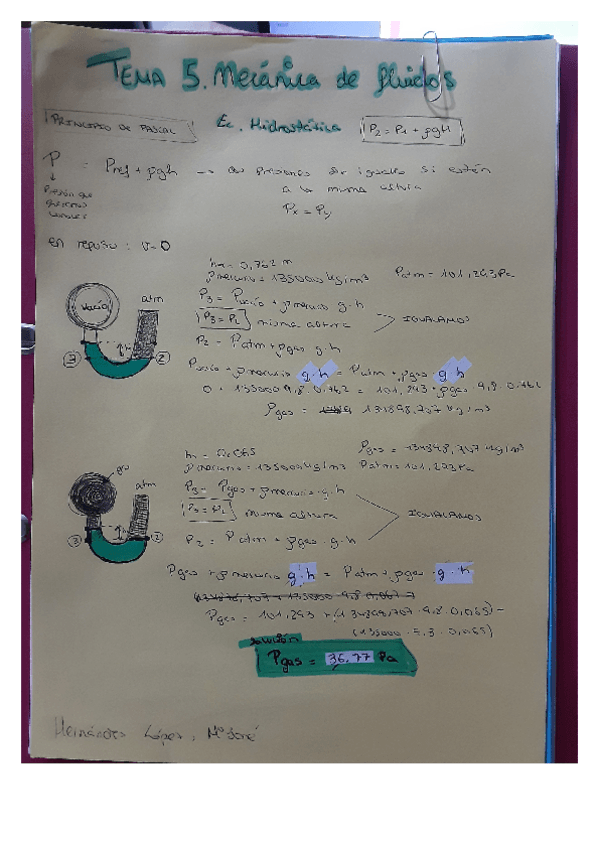 TEMA 5. Mecánica de fluidos
PRINCIPIO DE PASCAL
Ec. Hidrostática
P2 = P1 + ρgh
P = Pref + ρgh → las presiones son iguales si están
a la misma altura
Px = Py
Presión que
queremos
en reposo : v=0
h = 0,762 m
ρmercurio = 135000 kg/m3
Patm = 101,293 Pa
vacío
atm
P3 = Pvacío + ρmercurio g·h
P3 = P2 misma altura
IGUALAMOS
P2 = Patm + ρgas g·h
3
h
2
Pvacío + ρmercurio g·h = Patm + ρgas · g·h
0 + 135000 · 9,8 · 0,762 = 101,293 + ρgas · 9,8 · 0,762
ρgas = 134898,707 kg/m3
h = 0,065
ρgas = 134898,707 kg/m3
ρmercurio = 135000 kg/m3
Patm = 101,293 Pa
gas
atm
P3 = Pgas + ρmercurio · g·h
P3 = P2 misma altura
IGUALAMOS
P2 = Patm + ρgas · g·h
3
h
2
Pgas + ρmercurio g·h = Patm + ρgas · g·h
Pgas = 101,293 + (134898,707 · 9,8 · 0,065) -
(135000 · 9,8 · 0,065)
solución
Pgas = 36,77 Pa
Hernández López, Mª José